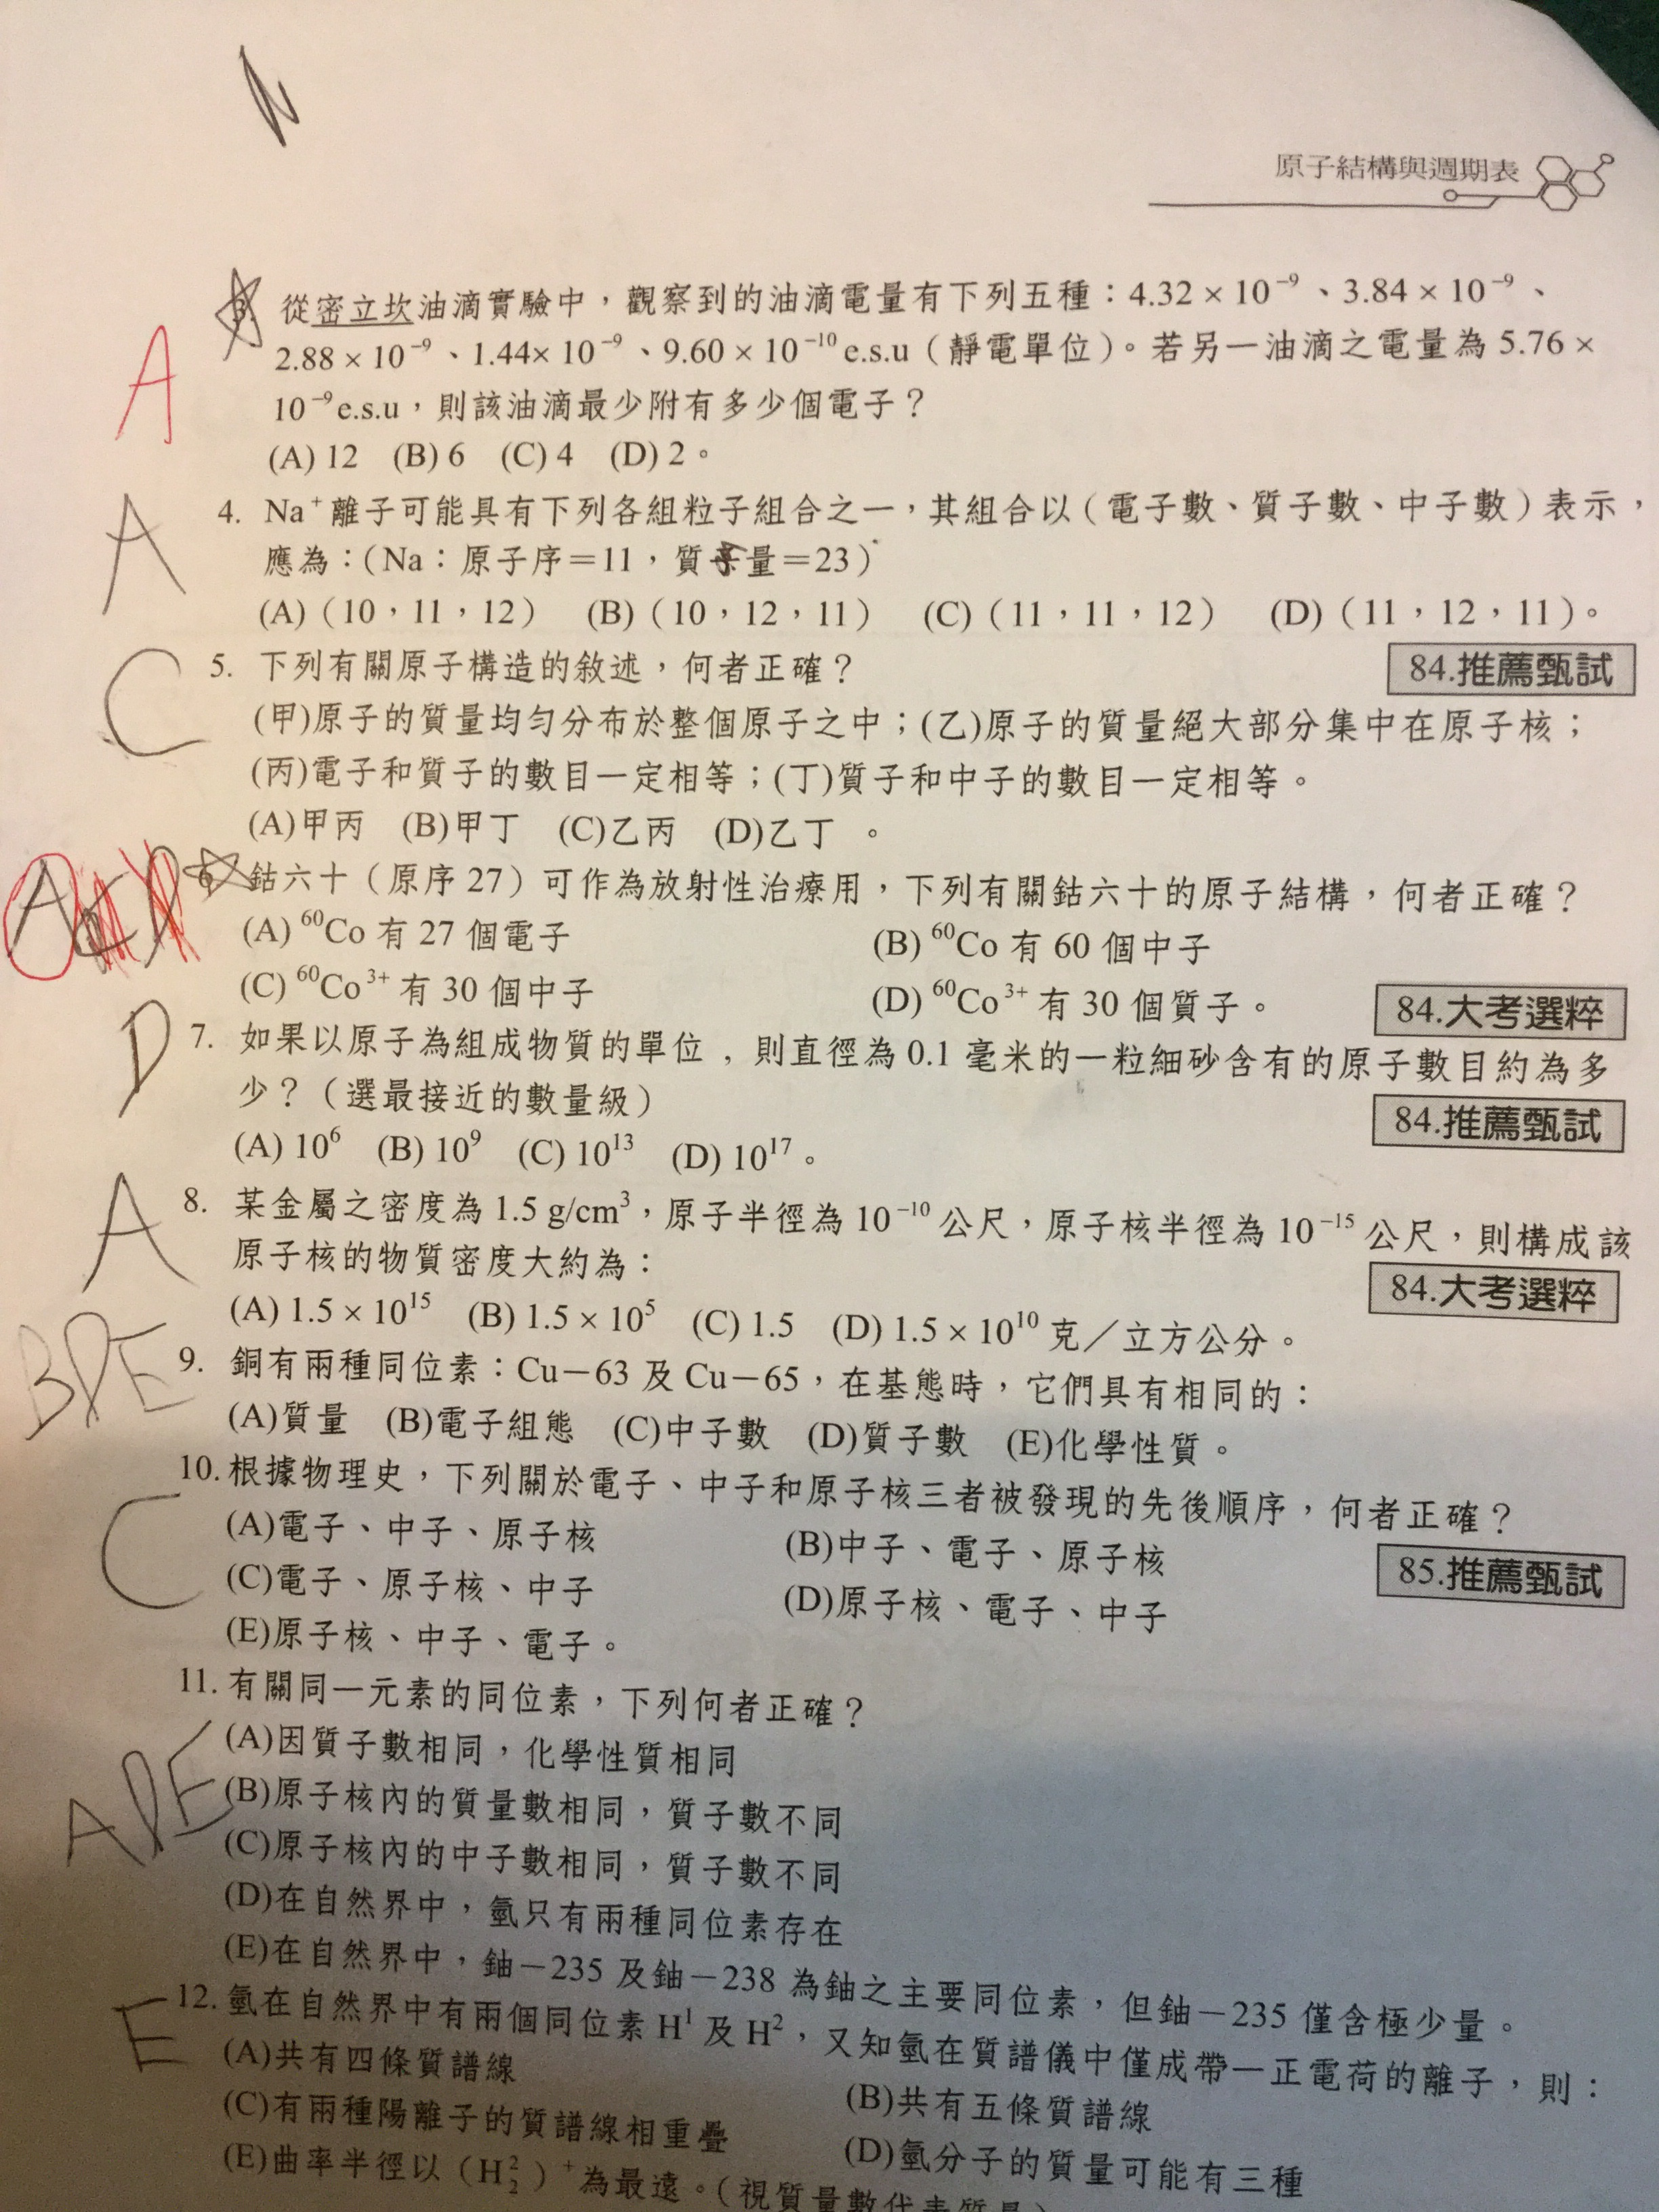 N
原子結構與週期表
3. 從密立坎油滴實驗中，觀察到的油滴電量有下列五種：4.32 × 10⁻⁹、3.84 × 10⁻⁹、
A
2.88 × 10⁻⁹、1.44× 10⁻⁹、9.60 × 10⁻¹⁰ e.s.u（靜電單位）。若另一油滴之電量為 5.76 ×
10⁻⁹ e.s.u，則該油滴最少附有多少個電子？
(A) 12 (B) 6 (C) 4 (D) 2。
A
4. Na⁺離子可能具有下列各組粒子組合之一，其組合以（電子數、質子數、中子數）表示，
應為：（Na：原子序＝11，質子量＝23）
(A)（10，11，12） (B)（10，12，11） (C)（11，11，12） (D)（11，12，11）。
C
5. 下列有關原子構造的敘述，何者正確？ 84.推薦甄試
(甲)原子的質量均勻分布於整個原子之中；(乙)原子的質量絕大部分集中在原子核；
(丙)電子和質子的數目一定相等；(丁)質子和中子的數目一定相等。
(A)甲丙 (B)甲丁 (C)乙丙 (D)乙丁 。
A
6. 鈷六十（原序 27）可作為放射性治療用，下列有關鈷六十的原子結構，何者正確？
(A) ⁶⁰Co 有 27 個電子 (B) ⁶⁰Co 有 60 個中子
(C) ⁶⁰Co³⁺ 有 30 個中子 (D) ⁶⁰Co³⁺ 有 30 個質子。 84.大考選粹
D
7. 如果以原子為組成物質的單位，則直徑為 0.1 毫米的一粒細砂含有的原子數目約為多
少？（選最接近的數量級） 84.推薦甄試
(A) 10⁶ (B) 10⁹ (C) 10¹³ (D) 10¹⁷。
A
8. 某金屬之密度為 1.5 g/cm³，原子半徑為 10⁻¹⁰ 公尺，原子核半徑為 10⁻¹⁵ 公尺，則構成該
原子核的物質密度大約為： 84.大考選粹
(A) 1.5 × 10¹⁵ (B) 1.5 × 10⁵ (C) 1.5 (D) 1.5 × 10¹⁰ 克／立方公分。
BDE
9. 銅有兩種同位素：Cu－63 及 Cu－65，在基態時，它們具有相同的：
(A)質量 (B)電子組態 (C)中子數 (D)質子數 (E)化學性質。
10. 根據物理史，下列關於電子、中子和原子核三者被發現的先後順序，何者正確？
C
(A)電子、中子、原子核 (B)中子、電子、原子核 85.推薦甄試
(C)電子、原子核、中子 (D)原子核、電子、中子
(E)原子核、中子、電子。
11. 有關同一元素的同位素，下列何者正確？
ADE
(A)因質子數相同，化學性質相同
(B)原子核內的質量數相同，質子數不同
(C)原子核內的中子數相同，質子數不同
(D)在自然界中，氫只有兩種同位素存在
(E)在自然界中，鈾－235 及鈾－238 為鈾之主要同位素，但鈾－235 僅含極少量。
E
12. 氫在自然界中有兩個同位素 H¹ 及 H²，又知氫在質譜儀中僅成帶一正電荷的離子，則：
(A)共有四條質譜線 (B)共有五條質譜線
(C)有兩種陽離子的質譜線相重疊 (D)氫分子的質量可能有三種
(E)曲率半徑以（H₂²）⁺為最遠。（視質量數代表質量）